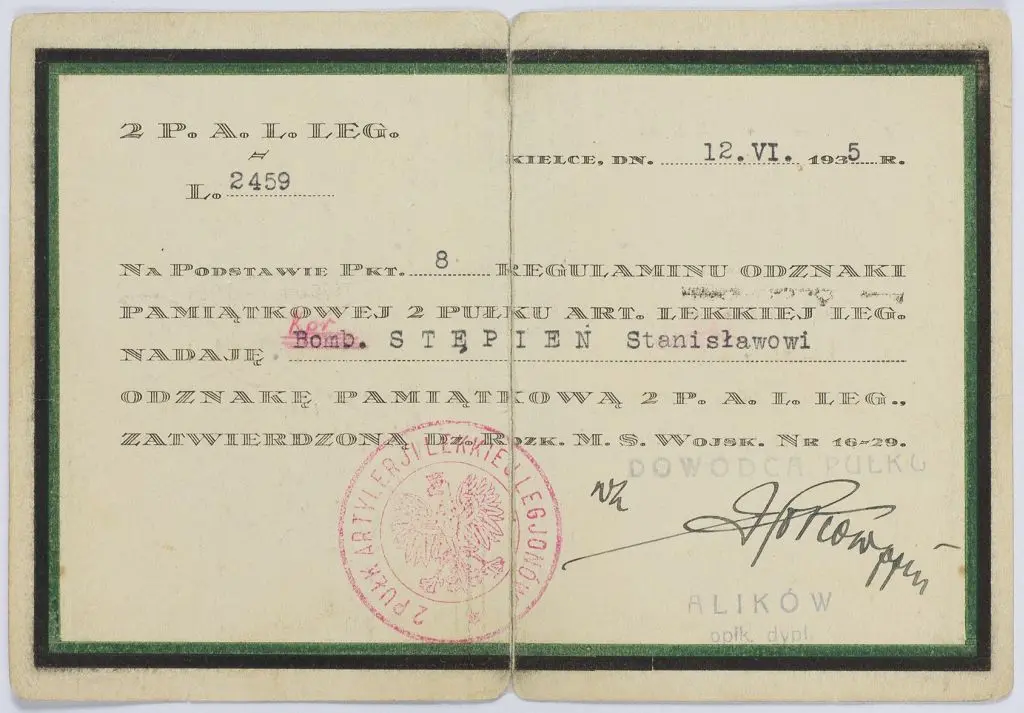 2 P. A. L. LEG.
L. 2459
KIELCE, DN. 12.VI. 1935 R.
NA PODSTAWIE PKT. 8 REGULAMINU ODZNAKI
PAMIĄTKOWEJ 2 PUŁKU ART. LEKKIEJ LEG.
Kpr
NADAJĘ Bomb. STĘPIEŃ Stanisławowi
ODZNAKĘ PAMIĄTKOWĄ 2 P. A. L. LEG.,
ZATWIERDZONĄ DZ. ROZK. M. S. WOJSK. NR 16-29.
2 PUŁK ARTYLERJI LEKKIEJ LEGJONÓW
DOWÓDCA PUŁKU
wz
ALIKÓW
opłk. dypl.